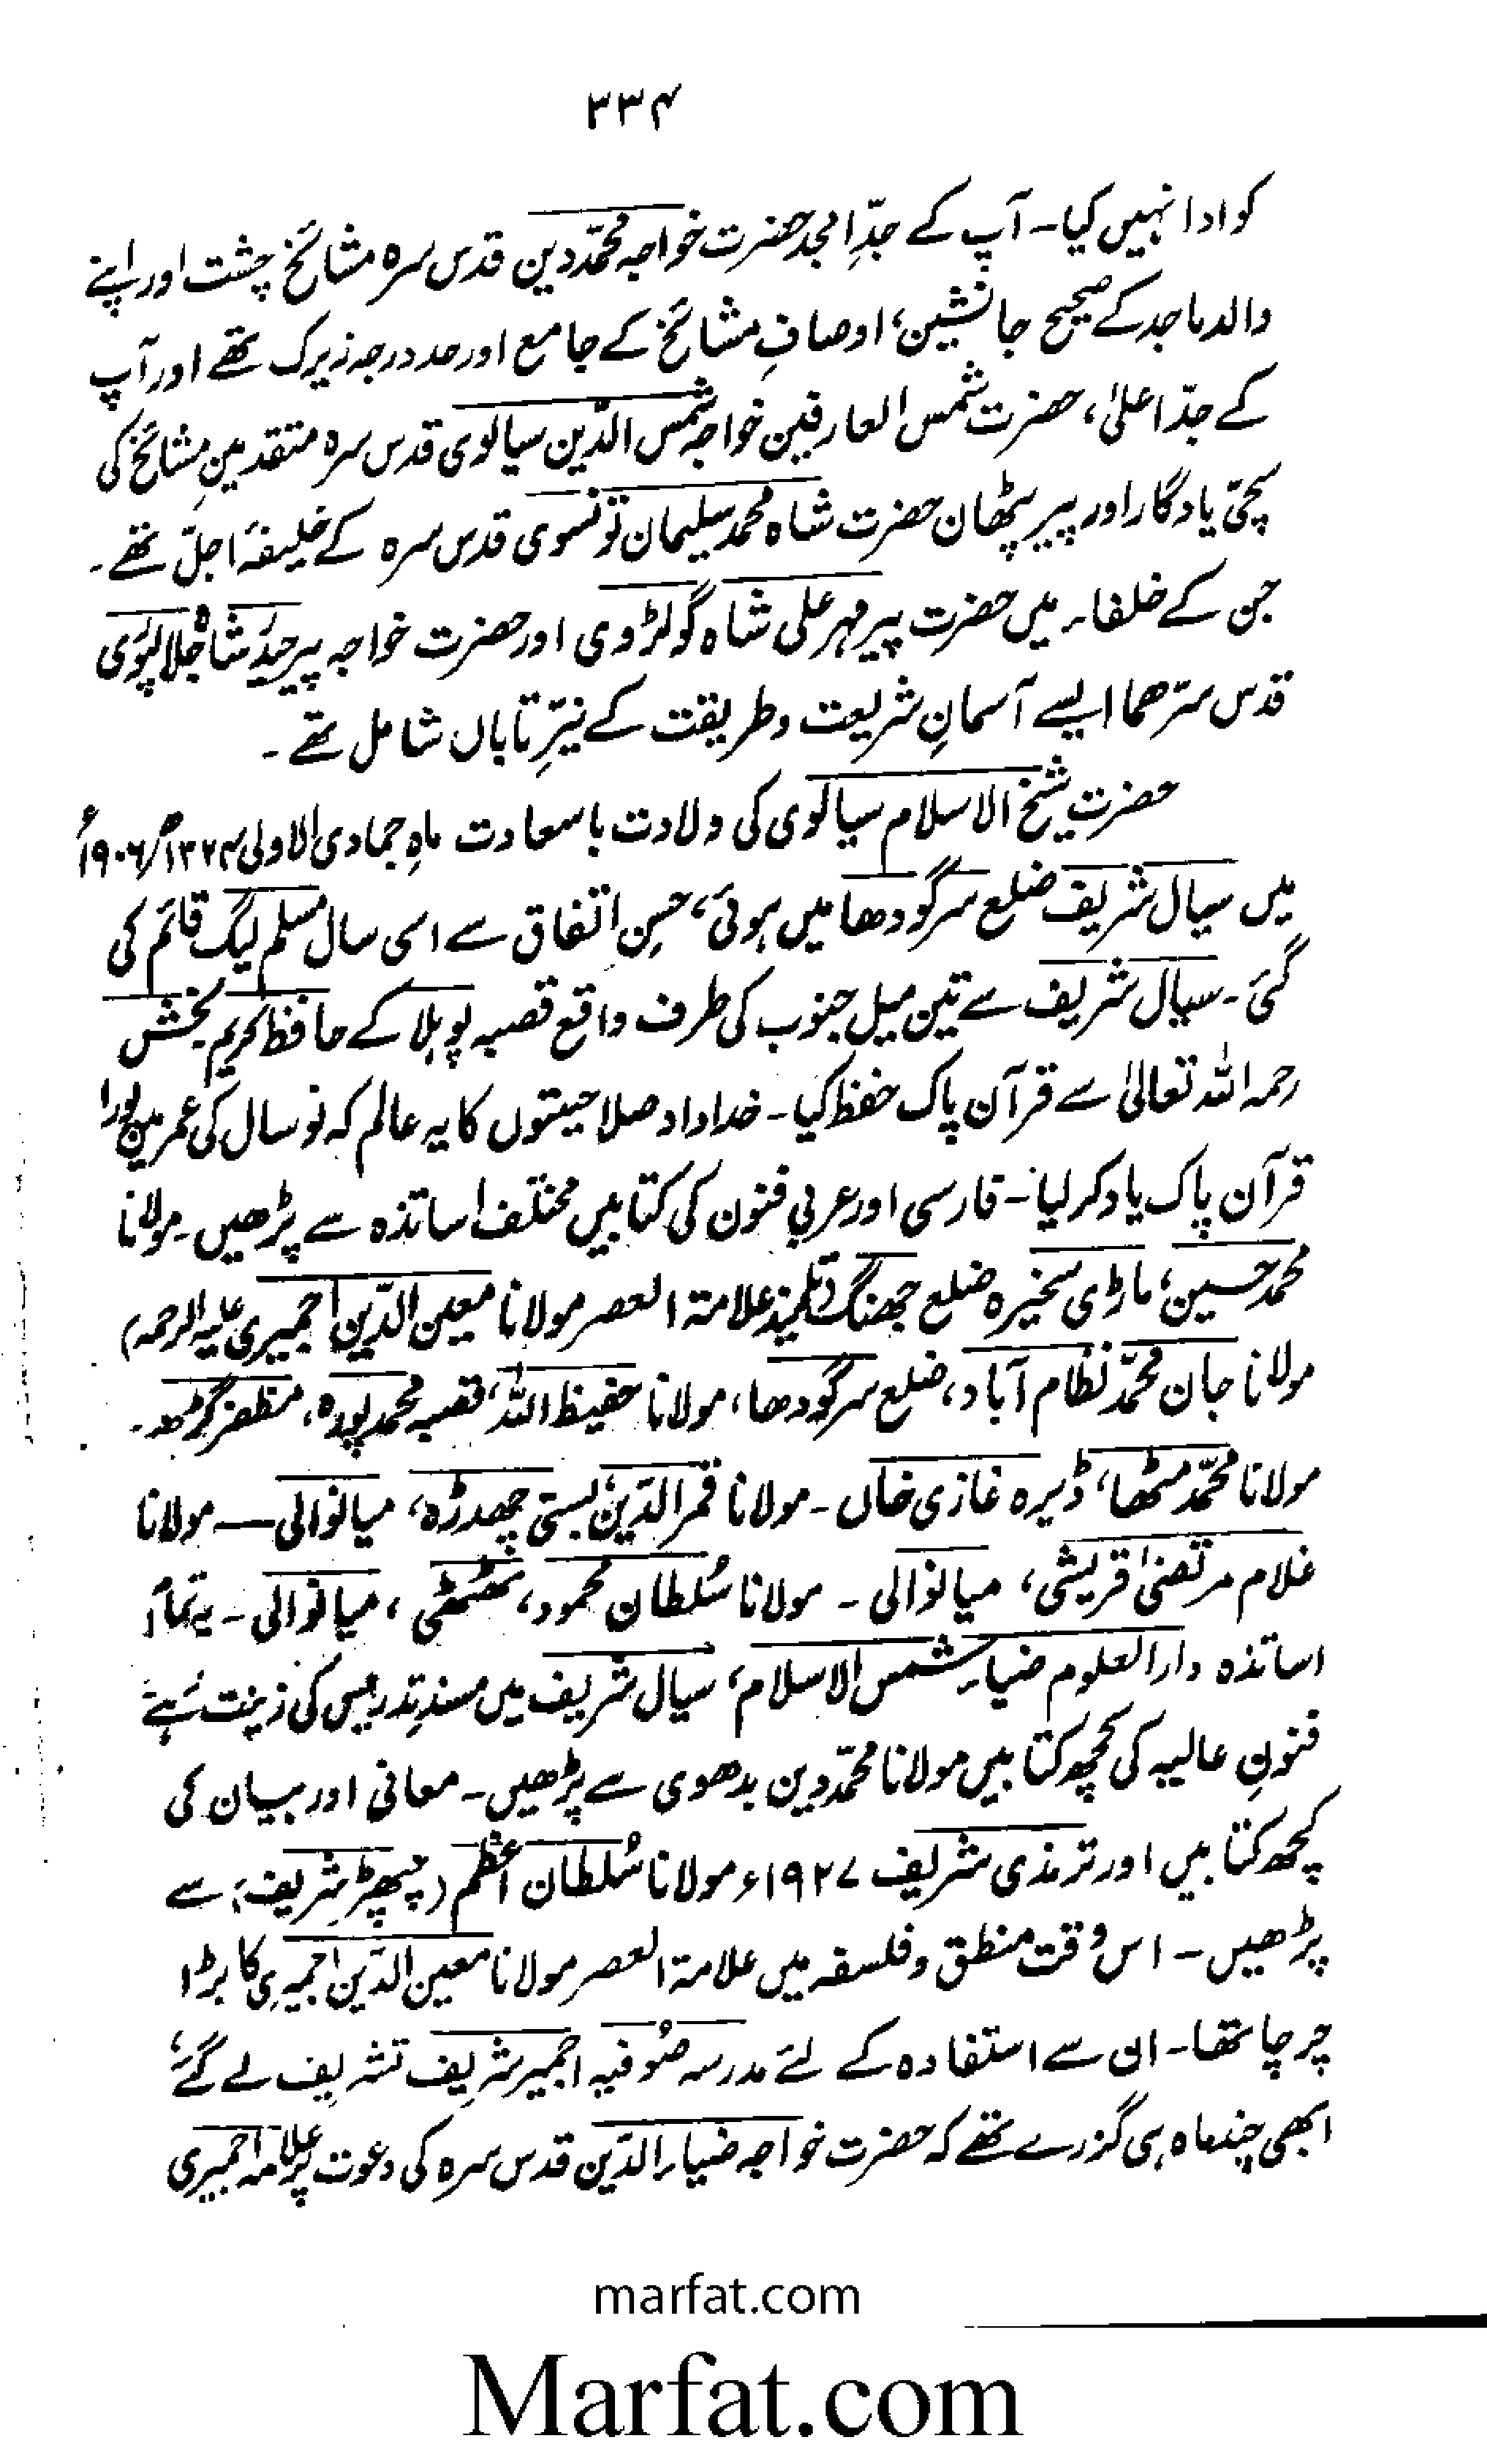 ۳۳۴
کو ادا نہیں کیا۔ آپ کے جدِّ امجد حضرت خواجہ محمّد دین قدس سرہ مشائخ چشت اور اپنے
والد ماجد کے صحیح جانشین، اوصافِ مشائخ کے جامع اور حد درجہ زیرک تھے اور آپ
کے جدّ اعلیٰ، حضرت شمس العارفین خواجہ شمس الدّین سیالوی قدس سرہ متقدمینِ مشائخ کی
سچّی یادگار اور پیر پٹھان حضرت شاہ محمد سلیمان تونسوی قدس سرہ کے خلیفۂ اجلّ تھے۔
جن کے خلفاء میں حضرت پیر مہر علی شاہ گولڑوی اور حضرت خواجہ پیر حیدر شاہ جلالپوری
قدس سرّھما ایسے آسمانِ شریعت و طریقت کے نیّرِ تاباں شامل تھے۔
حضرتِ شیخ الاسلام سیالوی کی ولادت باسعادت ماہِ جمادی الاولی ۱۳۲۴ھ/۱۹۰۶ء
میں سیال شریف ضلع سرگودھا میں ہوئی، حسنِ اتفاق سے اسی سال مسلم لیگ قائم کی
گئی۔ سیال شریف سے تین میل جنوب کی طرف واقع قصبہ پوہلا کے حافظ کریم بخش
رحمہ اللہ تعالیٰ سے قرآن پاک حفظ کیا۔ خداداد صلاحیتوں کا یہ عالم کہ نو سال کی عمر میں پورا
قرآن پاک یاد کر لیا۔ فارسی اور عربی فنون کی کتابیں مختلف اساتذہ سے پڑھیں۔ مولانا
محمد حسین، ماڑی سخیرہ ضلع جھنگ (تلمیذ علامۃ العصر مولانا معین الدّین اجمیری علیہ الرحمہ)
مولانا جان محمّد نظام آباد، ضلع سرگودھا، مولانا حفیظ اللہ، قصبہ محمد پورہ، مظفر گڑھ۔
مولانا محمّد مٹھا، ڈیرہ غازی خاں۔ مولانا قمر الدّین، بستی چھدڑہ، میانوالی — مولانا
غلام مرتضیٰ قریشی، میانوالی۔ مولانا سُلطان محمود، ٹھٹھی، میانوالی۔ یہ تمام
اساتذہ دارالعلوم ضیاء شمس الاسلام، سیال شریف میں مسندِ تدریس کی زینت رہے
فنونِ عالیہ کی کچھ کتابیں مولانا محمّد دین بدھوی سے پڑھیں۔ معانی اور بیان کی
کچھ کتابیں اور ترمذی شریف ۱۹۲۷ء مولانا سُلطان اعظم (چھپڑ شریف) سے
پڑھیں۔ اس وقت منطق و فلسفہ میں علامۃ العصر مولانا معین الدّین اجمیری کا بڑا
چرچا تھا۔ ان سے استفادہ کے لئے مدرسہ صُوفیہ اجمیر شریف تشریف لے گئے،
ابھی چند ماہ ہی گزرے تھے کہ حضرت خواجہ ضیاء الدّین قدس سرہ کی دعوت پر علامہ اجمیری
marfat.com
Marfat.com